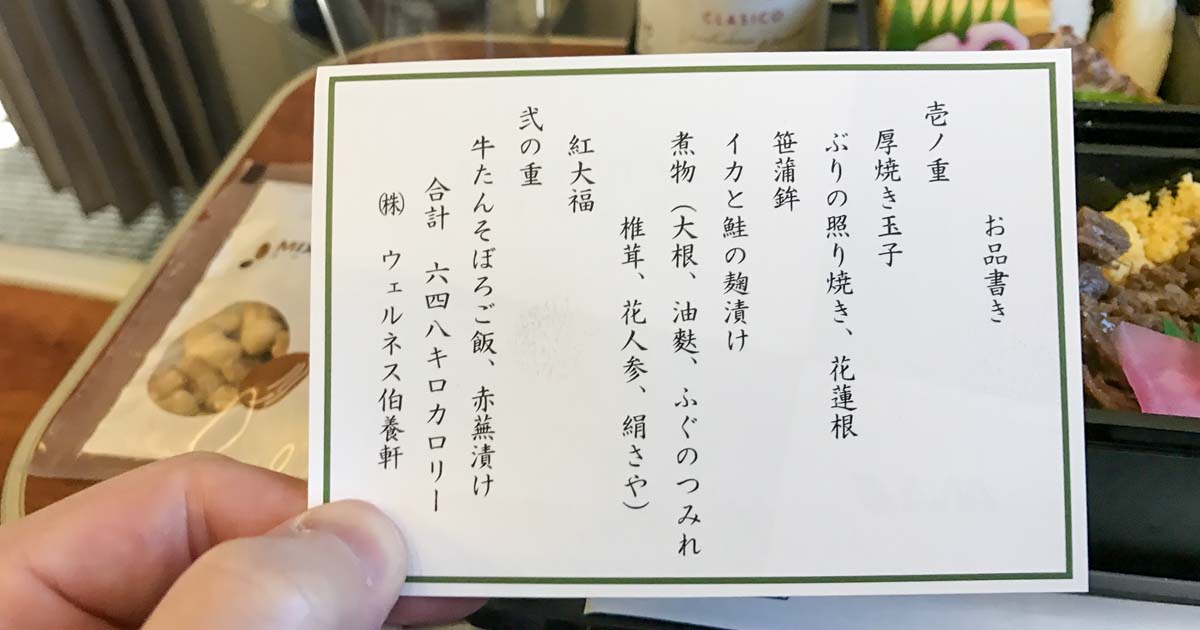 お品書き
壱ノ重
厚焼き玉子
ぶりの照り焼き、花蓮根
笹蒲鉾
イカと鮭の麹漬け
煮物（大根、油麩、ふぐのつみれ
椎茸、花人参、絹さや）
紅大福
弐の重
牛たんそぼろご飯、赤蕪漬け
合計　六四八キロカロリー
㈱　ウェルネス伯養軒
CLASICO